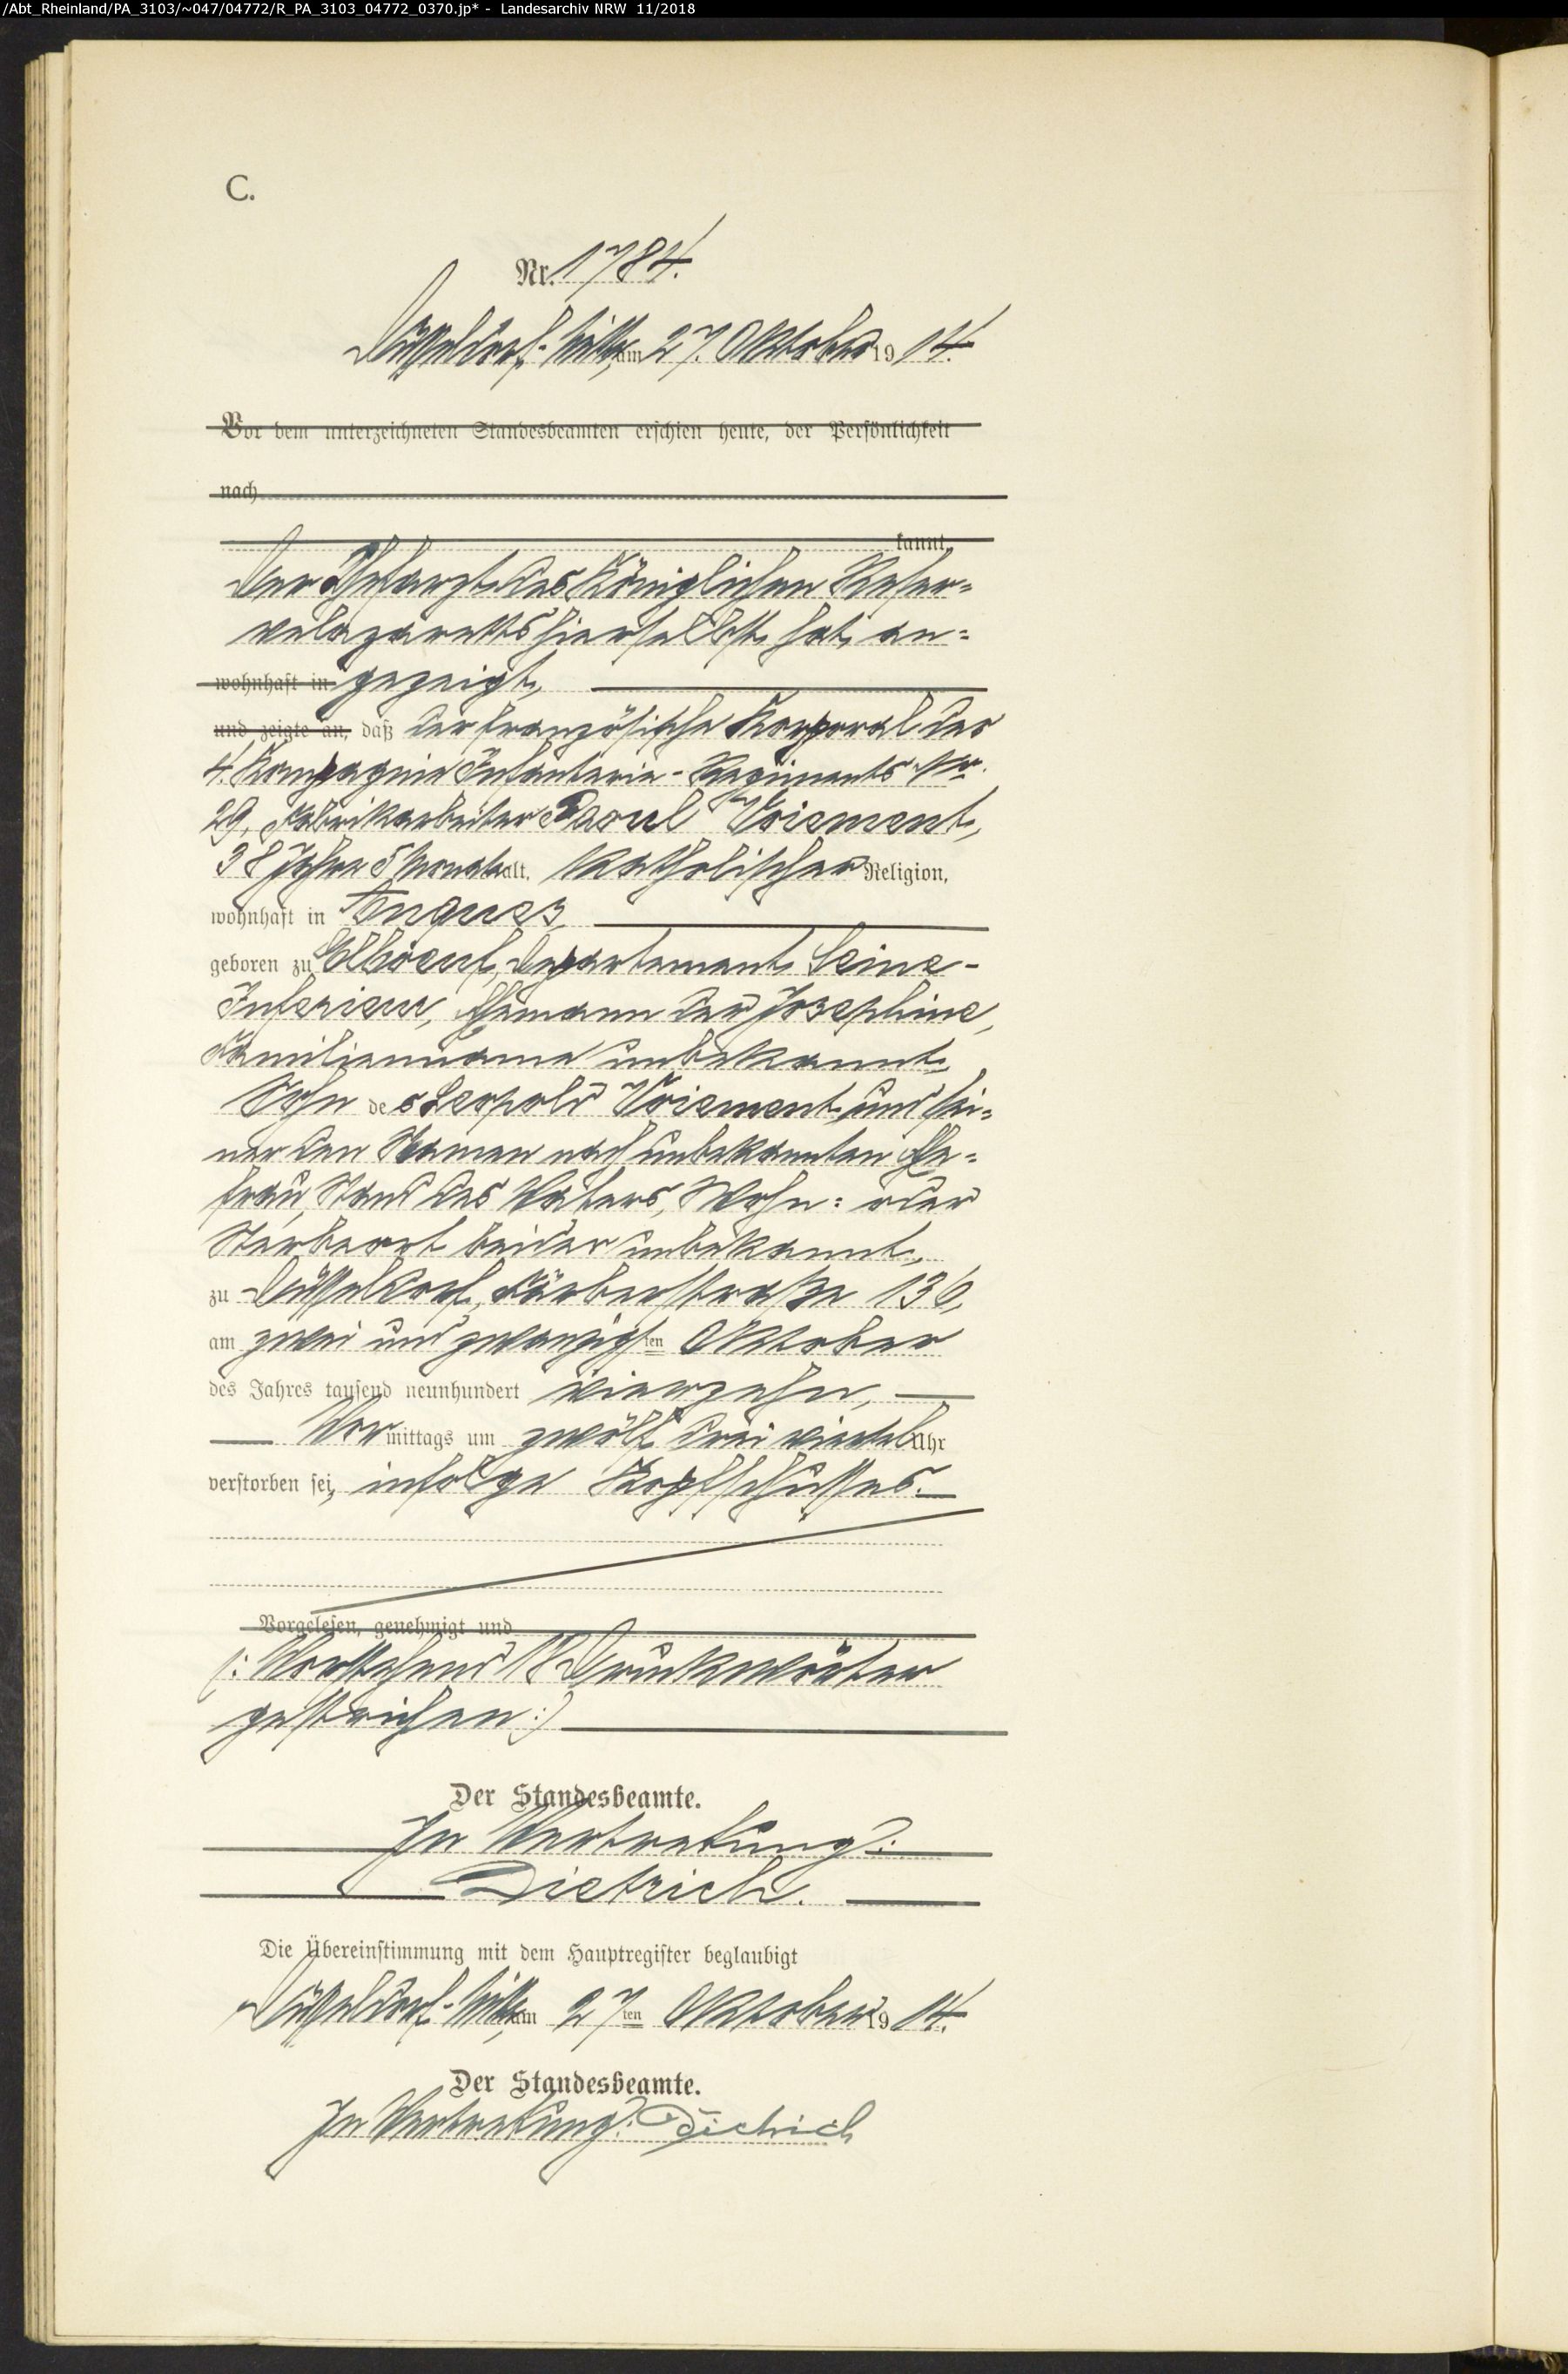 /Abt_Rheinland/PA_3103/~047/04772/R_PA_3103_04772_0370.jp* - Landesarchiv NRW 11/2018
C.
Nr. 1784.
Düsseldorf-Mitte, am 27. Oktober 1914.
Vor dem unterzeichneten Standesbeamten erschien heute, der Persönlichkeit
nach
kannt,
Der Chefarzt des Königlichen Reser-
velazaretts hierselbst, hat an-
wohnhaft in gezeigt,
und zeigte an, daß der französische Korporal des
4. Kompagnie Infanterie-Regiments Nr.
29, Fabrikarbeiter Raoul Voisment,
38 Jahre 5 Monate alt, katholischer Religion,
wohnhaft in
geboren zu Elboeuf, Departement Seine-
Inferieur, Ehemann der Josephine,
Familienname unbekannt,
Sohn des Leopold Voisment und sei-
ner den Namen nach unbekannten Ehe-
frau, Stand des Vaters, Wohn- oder
Sterbeort beider unbekannt,
zu Düsseldorf, Färberstraße 136,
am zwei und zwanzigsten Oktober
des Jahres tausend neunhundert vierzehn,
Vormittags um zwölf drei viertel Uhr
verstorben sei, infolge Kopfschusses.
Vorgelesen, genehmigt und
(: Vorstehend 18 Druckwörter
gestrichen :)
Der Standesbeamte.
In Vertretung:
Dietrich.
Die Übereinstimmung mit dem Hauptregister beglaubigt
Düsseldorf-Mitte, am 27ten Oktober 1914.
Der Standesbeamte.
In Vertretung: Dietrich